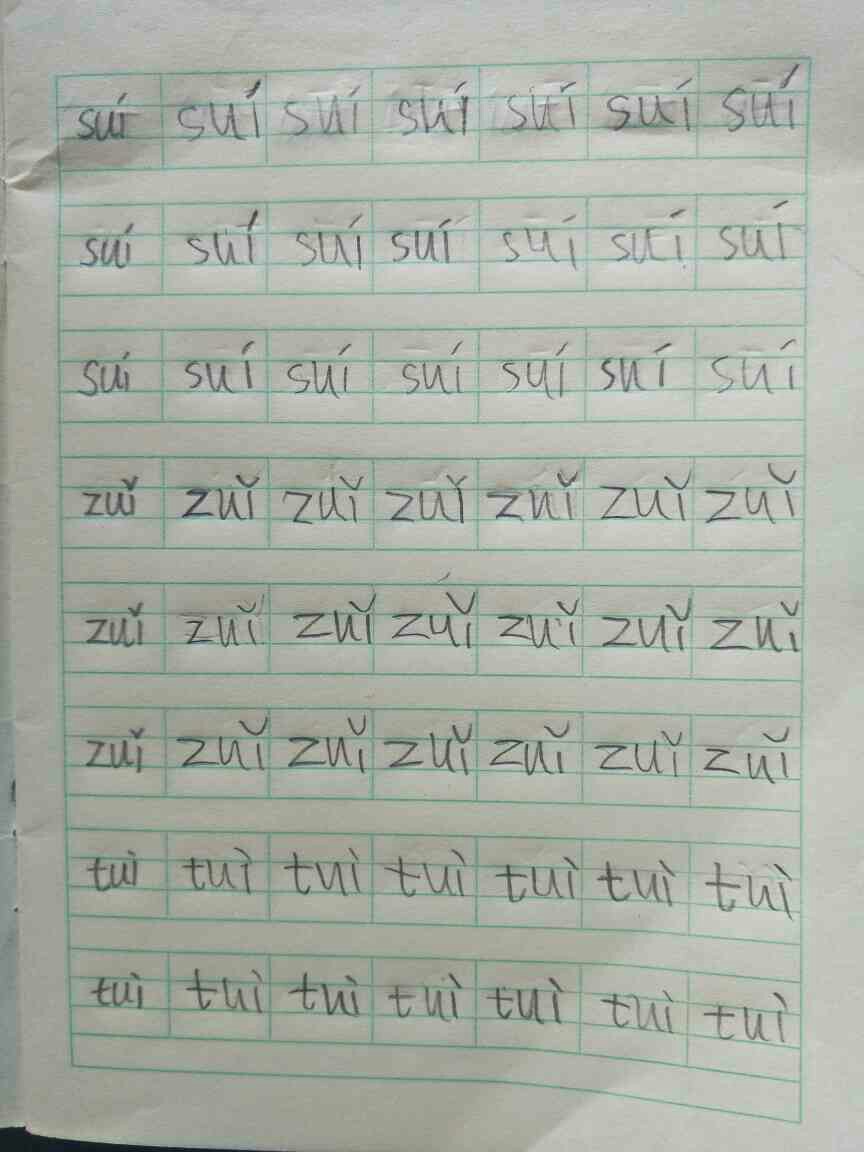 suí suí suí suí suí suí suí
suí suí suí suí suí suí suí
suí suí suí suí suí suí suí
zuǐ zuǐ zuǐ zuǐ zuǐ zuǐ zuǐ
zuǐ zuǐ zuǐ zuǐ zuǐ zuǐ zuǐ
zuǐ zuǐ zuǐ zuǐ zuǐ zuǐ zuǐ
tuì tuì tuì tuì tuì tuì tuì
tuì tuì tuì tuì tuì tuì tuì